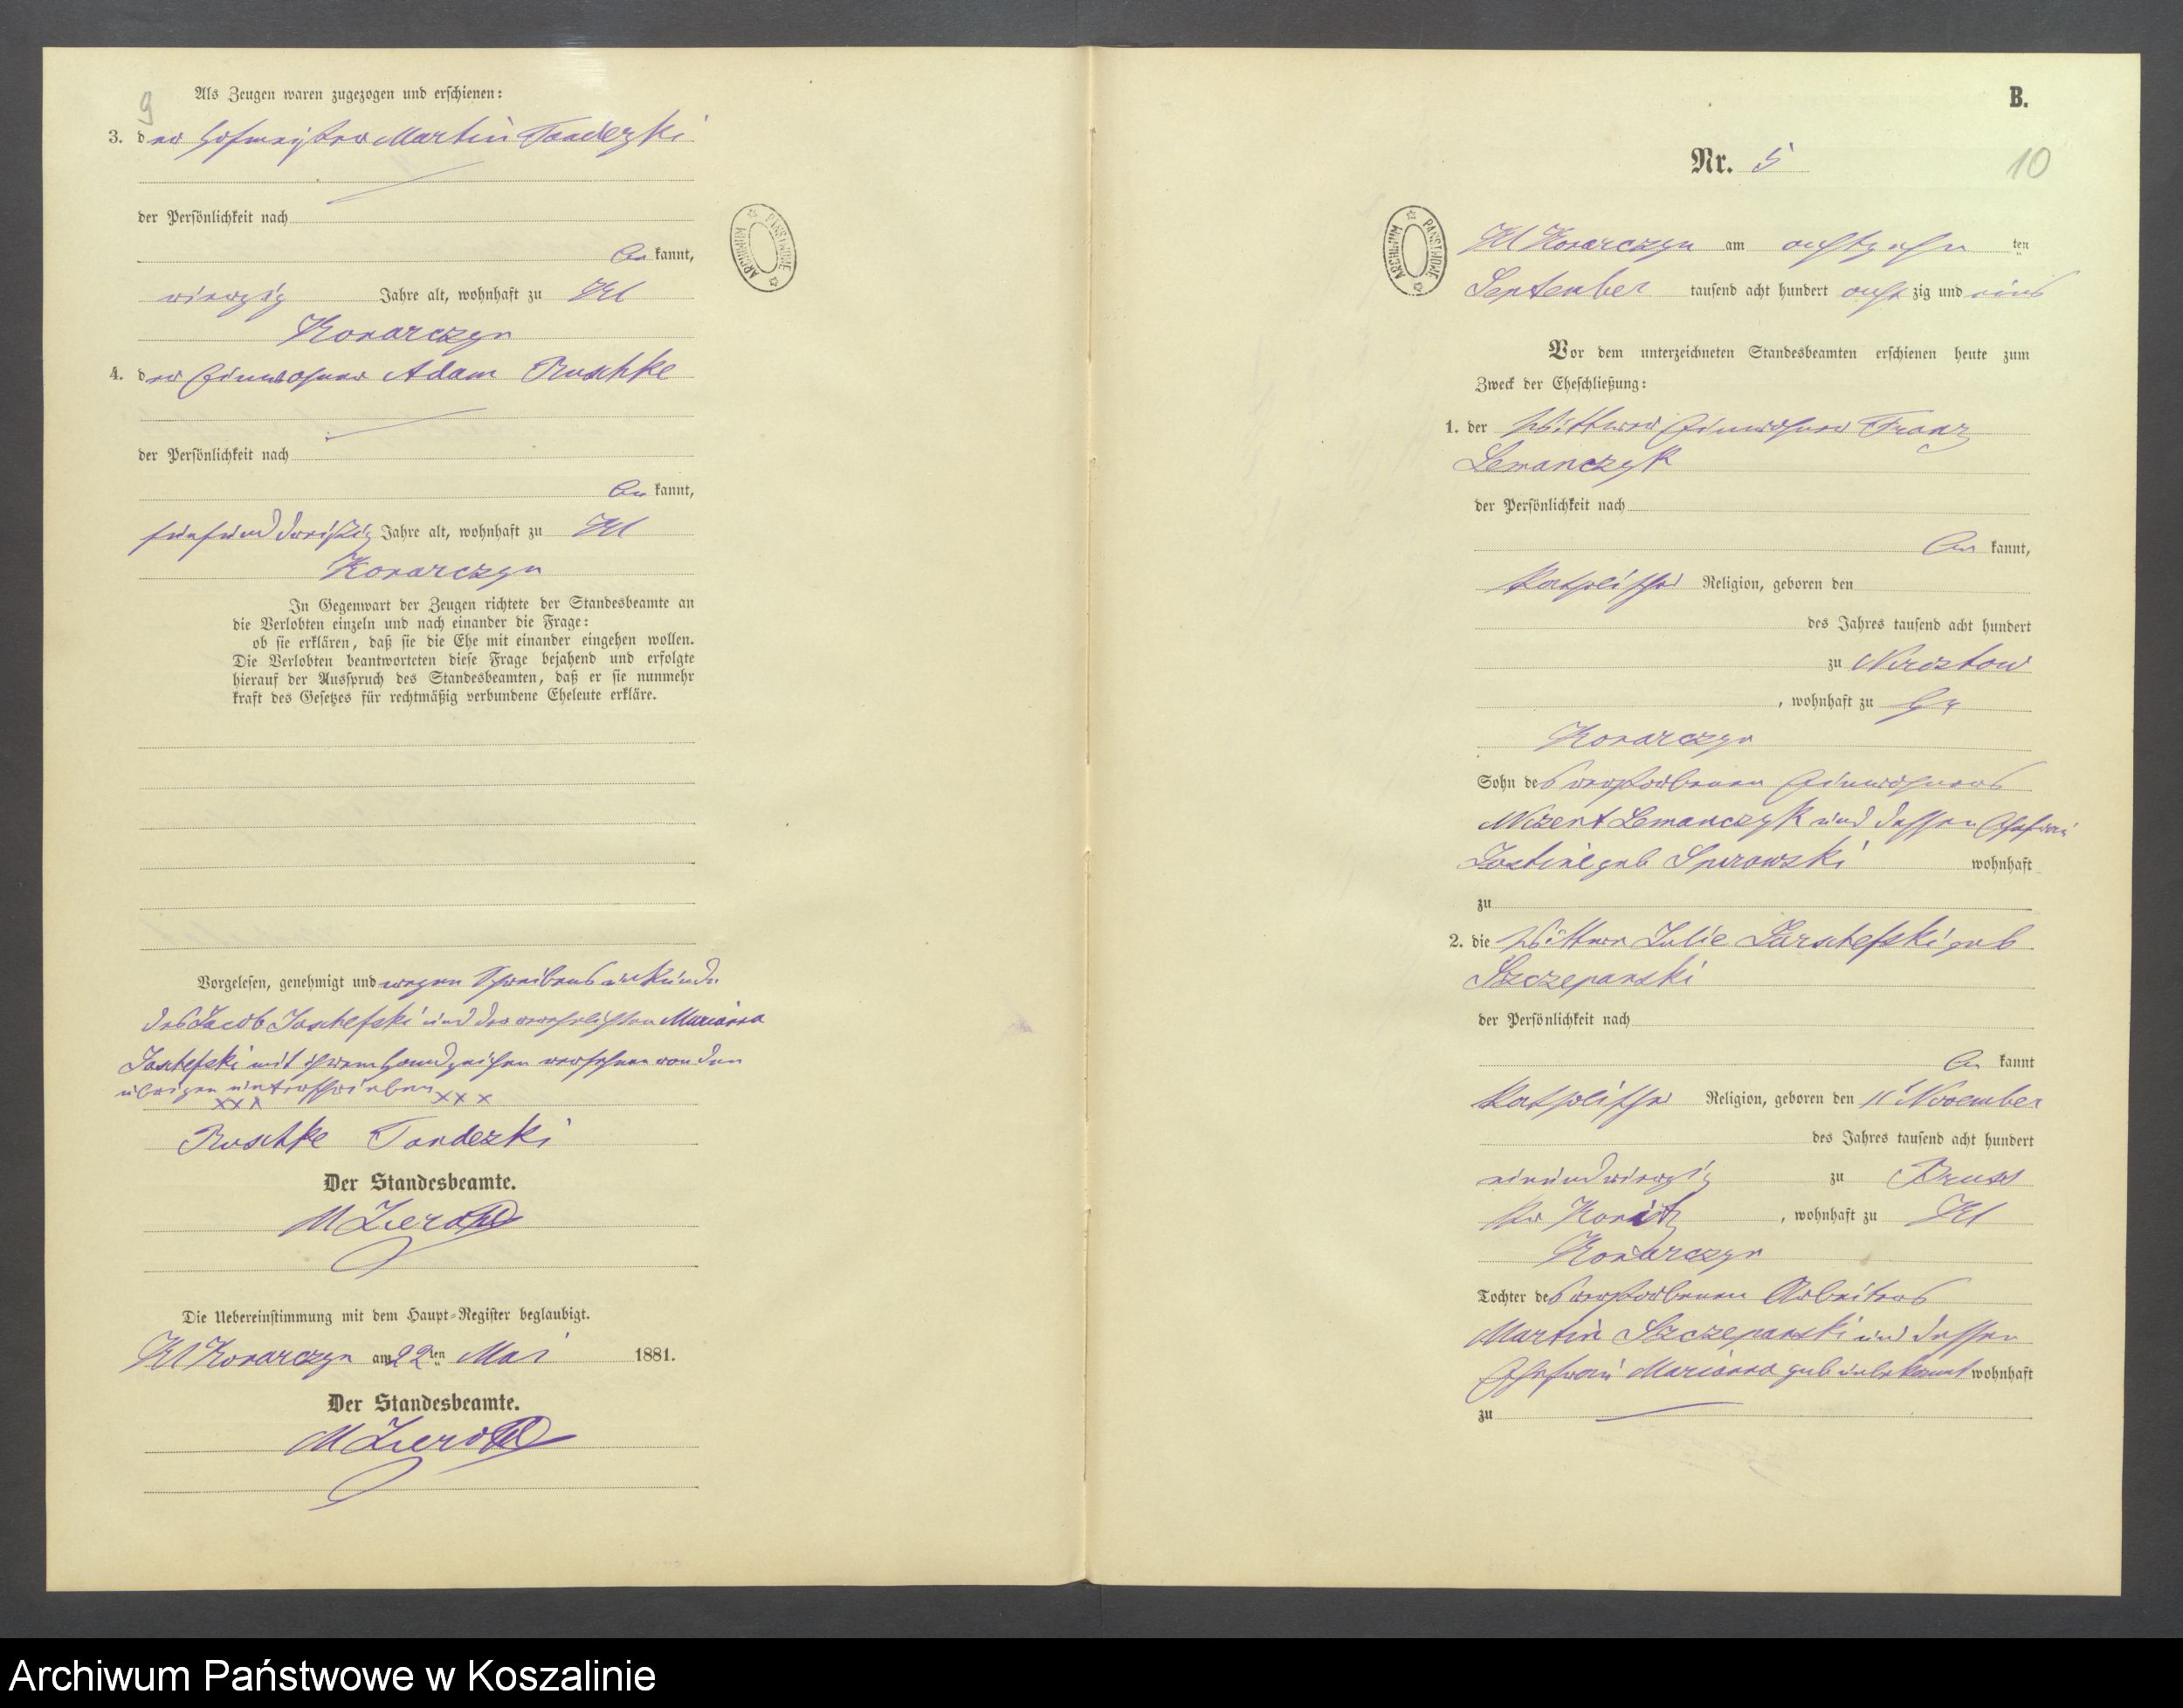 9
Als Zeugen waren zugezogen und erschienen:
3. der Hofmeister Martin Tandezki
der Persönlichkeit nach
be kannt,
vierzig Jahre alt, wohnhaft zu Kl
Konarczyn
4. der Einwohner Adam Ruschke
der Persönlichkeit nach
be kannt,
fünfunddreißig Jahre alt, wohnhaft zu Kl
Konarczyn
In Gegenwart der Zeugen richtete der Standesbeamte an
die Verlobten einzeln und nach einander die Frage:
ob sie erklären, daß sie die Ehe mit einander eingehen wollen.
Die Verlobten beantworteten diese Frage bejahend und erfolgte
hierauf der Ausspruch des Standesbeamten, daß er sie nunmehr
kraft des Gesetzes für rechtmäßig verbundene Eheleute erkläre.
Vorgelesen, genehmigt und wegen Schreibensunkunde
des Jacob Jaschefski und der verehelichten Marianna
Jaschefski mit ihrem Handzeichen versehen von den
übrigen unterschrieben
xxx xxx
Ruschke Tandezki
Der Standesbeamte.
Die Uebereinstimmung mit dem Haupt-Register beglaubigt.
Kl Konarczyn am 22 ten Mai 1881.
Der Standesbeamte.
ARCHIWUM PAŃSTWOWE
B.
Nr. 5
10
ARCHIWUM PAŃSTWOWE
Kl Konarczyn am achtzehn ten
September tausend acht hundert acht zig und eins
Vor dem unterzeichneten Standesbeamten erschienen heute zum
Zweck der Eheschließung:
1. der Wittwer Einwohner Franz
Lemanczyk
der Persönlichkeit nach
be kannt,
Katholischer Religion, geboren den
des Jahres tausend acht hundert
zu
, wohnhaft zu Gr
Konarczyn
Sohn des verstorbenen Einwohners
Lemanczyk und dessen Ehefrau
geb wohnhaft
zu
2. die Wittwe Julie Jarschefski geb
Szczepanski
der Persönlichkeit nach
be kannt
Katholischer Religion, geboren den 11t November
des Jahres tausend acht hundert
einundvierzig zu Bruss
Kr Konitz , wohnhaft zu Kl
Konarczyn
Tochter des verstorbenen Arbeiters
Martin Szczepanski und dessen
Ehefrau Marianna geb unbekannt wohnhaft
zu
Archiwum Państwowe w Koszalinie